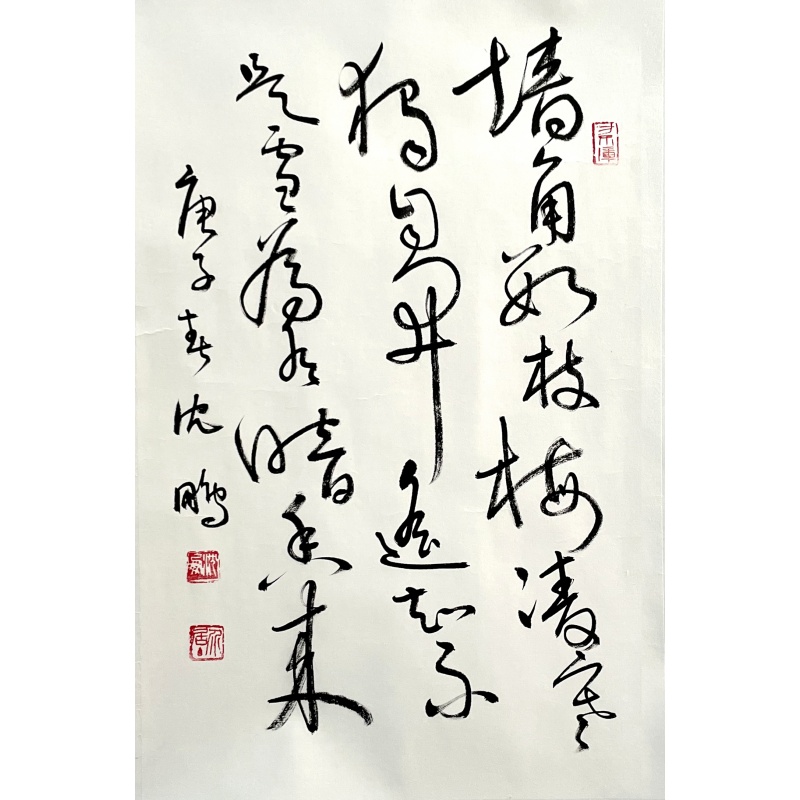 墙角数枝梅凌寒
独自开遥知不
是雪为有暗香来
庚子春沈鹏
沈鹏
介居